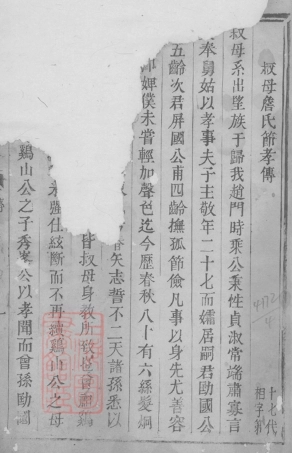 叔母詹氏節孝傳
叔母系出望族于歸我趙門時乘公秉性貞淑常端肅寡言
奉舅姑以孝事夫子主敬年二十七而孀居嗣君勛國公
五齡次君屏國公甫四齡撫孤節儉凡事以身先尤善容
婢僕未嘗輕加聲色迄今歷春秋八十有六縣髮烱
矢志誓不二天諸孫悉以
皆叔母身教所致也
強仕絃斷而不再續鷄山公之母
鷄山公之子秀峯公以孝聞而曾孫勛國
十七代